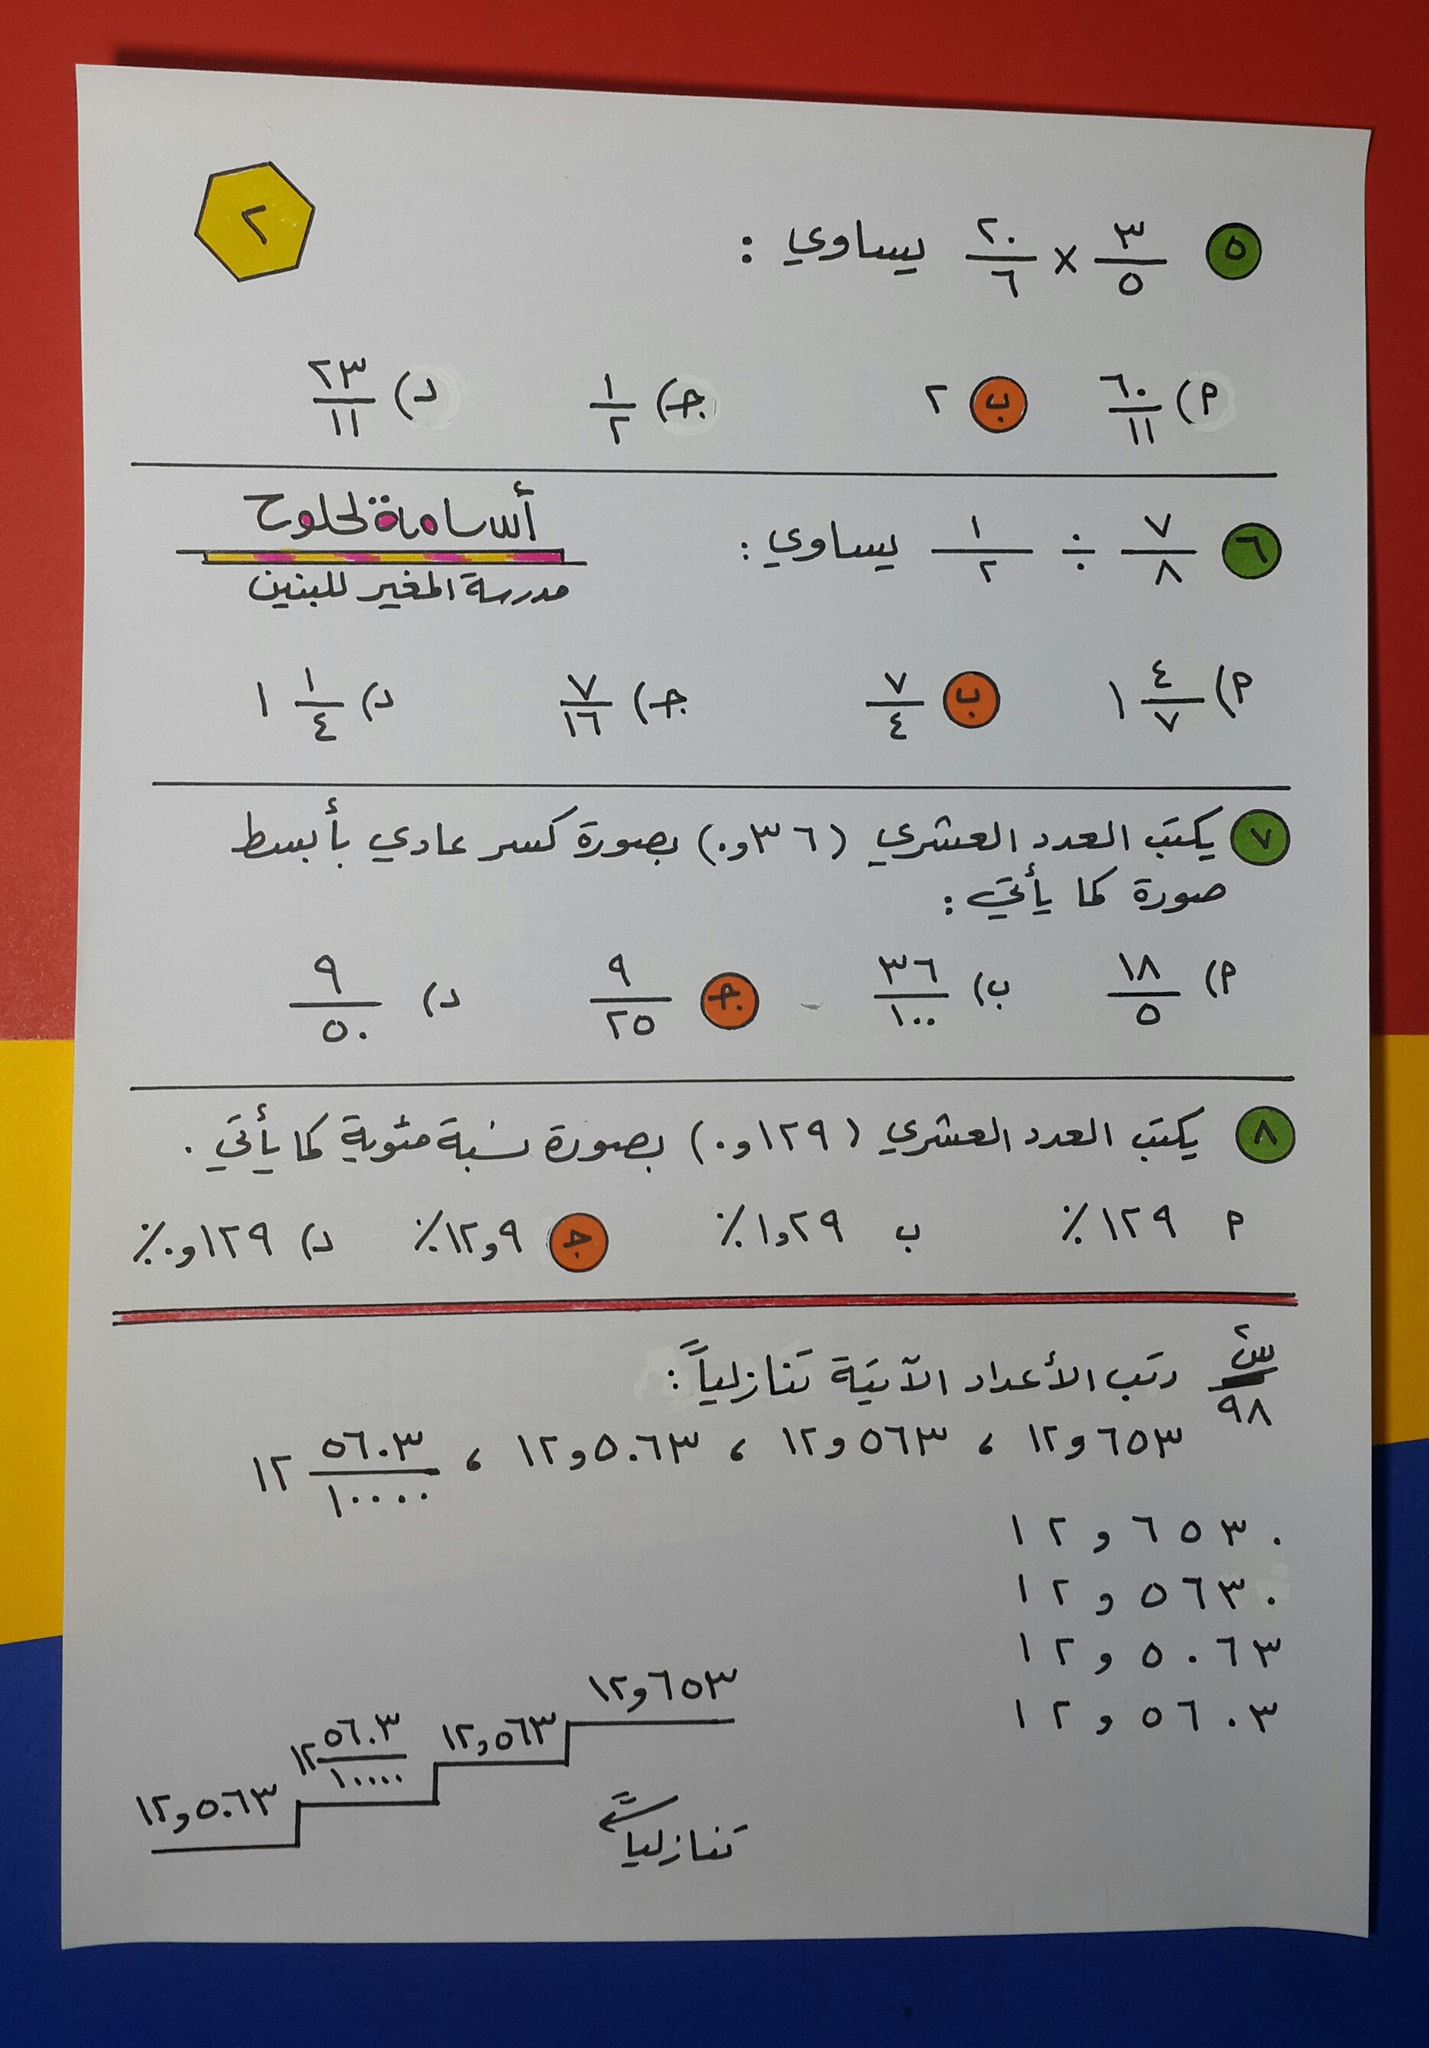 ٢
٥ ٣/٥ × ٢٠/٦ يساوي :
أ) ٦٠/١١ ب ٢ جـ) ١/٢ د) ٢٣/١١
أسامة لحلوح
مدرسة المغير للبنين
٦ ٧/٨ ÷ ١/٢ يساوي :
أ) ١ ٤/٧ ب ٧/٤ جـ) ٧/١٦ د) ١ ١/٤
٧ يكتب العدد العشري (٠,٣٦) بصورة كسر عادي بأبسط
صورة كما يأتي :
أ) ١٨/٥ ب) ٣٦/١٠٠ جـ ٩/٢٥ د) ٩/٥٠
٨ يكتب العدد العشري (٠,١٢٩) بصورة نسبة مئوية كما يأتي .
أ ١٢٩٪ ب ١,٢٩٪ جـ ١٢,٩٪ د) ٠,١٢٩٪
س٢ رتب الأعداد الآتية تنازلياً :
٩٨
١٢,٦٥٣ ، ١٢,٥٦٣ ، ١٢,٥٠٦٣ ، ١٢ ٥٦٠٣/١٠٠٠٠
١٢,٦٥٣٠
١٢,٥٦٣٠
١٢,٥٠٦٣
١٢,٥٦٠٣
١٢,٦٥٣
١٢,٥٦٣
١٢ ٥٦٠٣/١٠٠٠٠
١٢,٥٠٦٣
تنازلياً